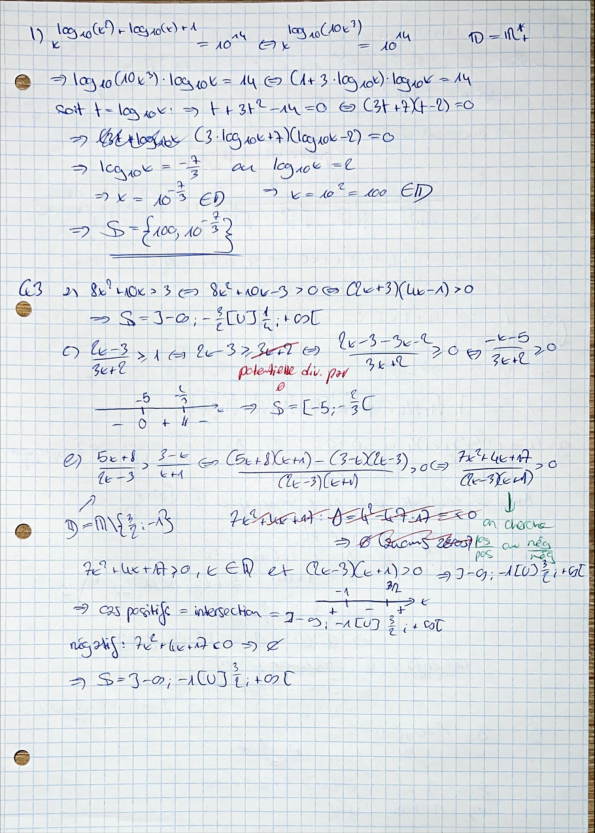 1) x^(log₁₀(x²)+log₁₀(x)+1) = 10¹⁴ ⇔ x^(log₁₀(10x³)) = 10¹⁴ D = ℝ*₊
⇒ log₁₀(10x³)·log₁₀x = 14 ⇔ (1+3·log₁₀x)·log₁₀x = 14
soit t = log₁₀x: ⇒ t+3t²-14=0 ⇔ (3t+7)(t-2)=0
⇒ (3·log₁₀x+7)(log₁₀x-2)=0
⇒ log₁₀x = -7/3 ou log₁₀x = 2
⇒ x = 10^(-7/3) ∈ D ⇒ x = 10² = 100 ∈ D
⇒ S = {100, 10^(-7/3)}
G3 a) 8x²+10x > 3 ⇔ 8x²+10x-3 > 0 ⇔ (2x+3)(4x-1) > 0
⇒ S = ]-∞; -3/2[ U ]1/4; +∞[
c) (2x-3)/(3x+2) ≥ 1 ⇔ 2x-3 ≥ 3x+2 ⇔ (2x-3-3x-2)/(3x+2) ≥ 0 ⇔ (-x-5)/(3x+2) ≥ 0
div. par
0
⇒ S = [-5; -2/3[
- 0 + -
e) (5x+8)/(2x-3) > (3-x)/(x+1) ⇔ ((5x+8)(x+1) - (3-x)(2x-3))/((2x-3)(x+1)) > 0 ⇔ (7x²+4x+17)/((2x-3)(x+1)) > 0
D = ℝ\{3/2; -1}
on cherche
pos/pos ou nég/nég
7x²+4x+17 > 0, x ∈ ℝ et (2x-3)(x+1) > 0 ⇒ ]-∞; -1[ U ]3/2; +∞[
-1 3/2 x
+ - +
⇒ cas positifs = intersection = ]-∞; -1[ U ]3/2; +∞[
négatif: 7x²+4x+17 < 0 ⇒ ∅
⇒ S = ]-∞; -1[ U ]3/2; +∞[